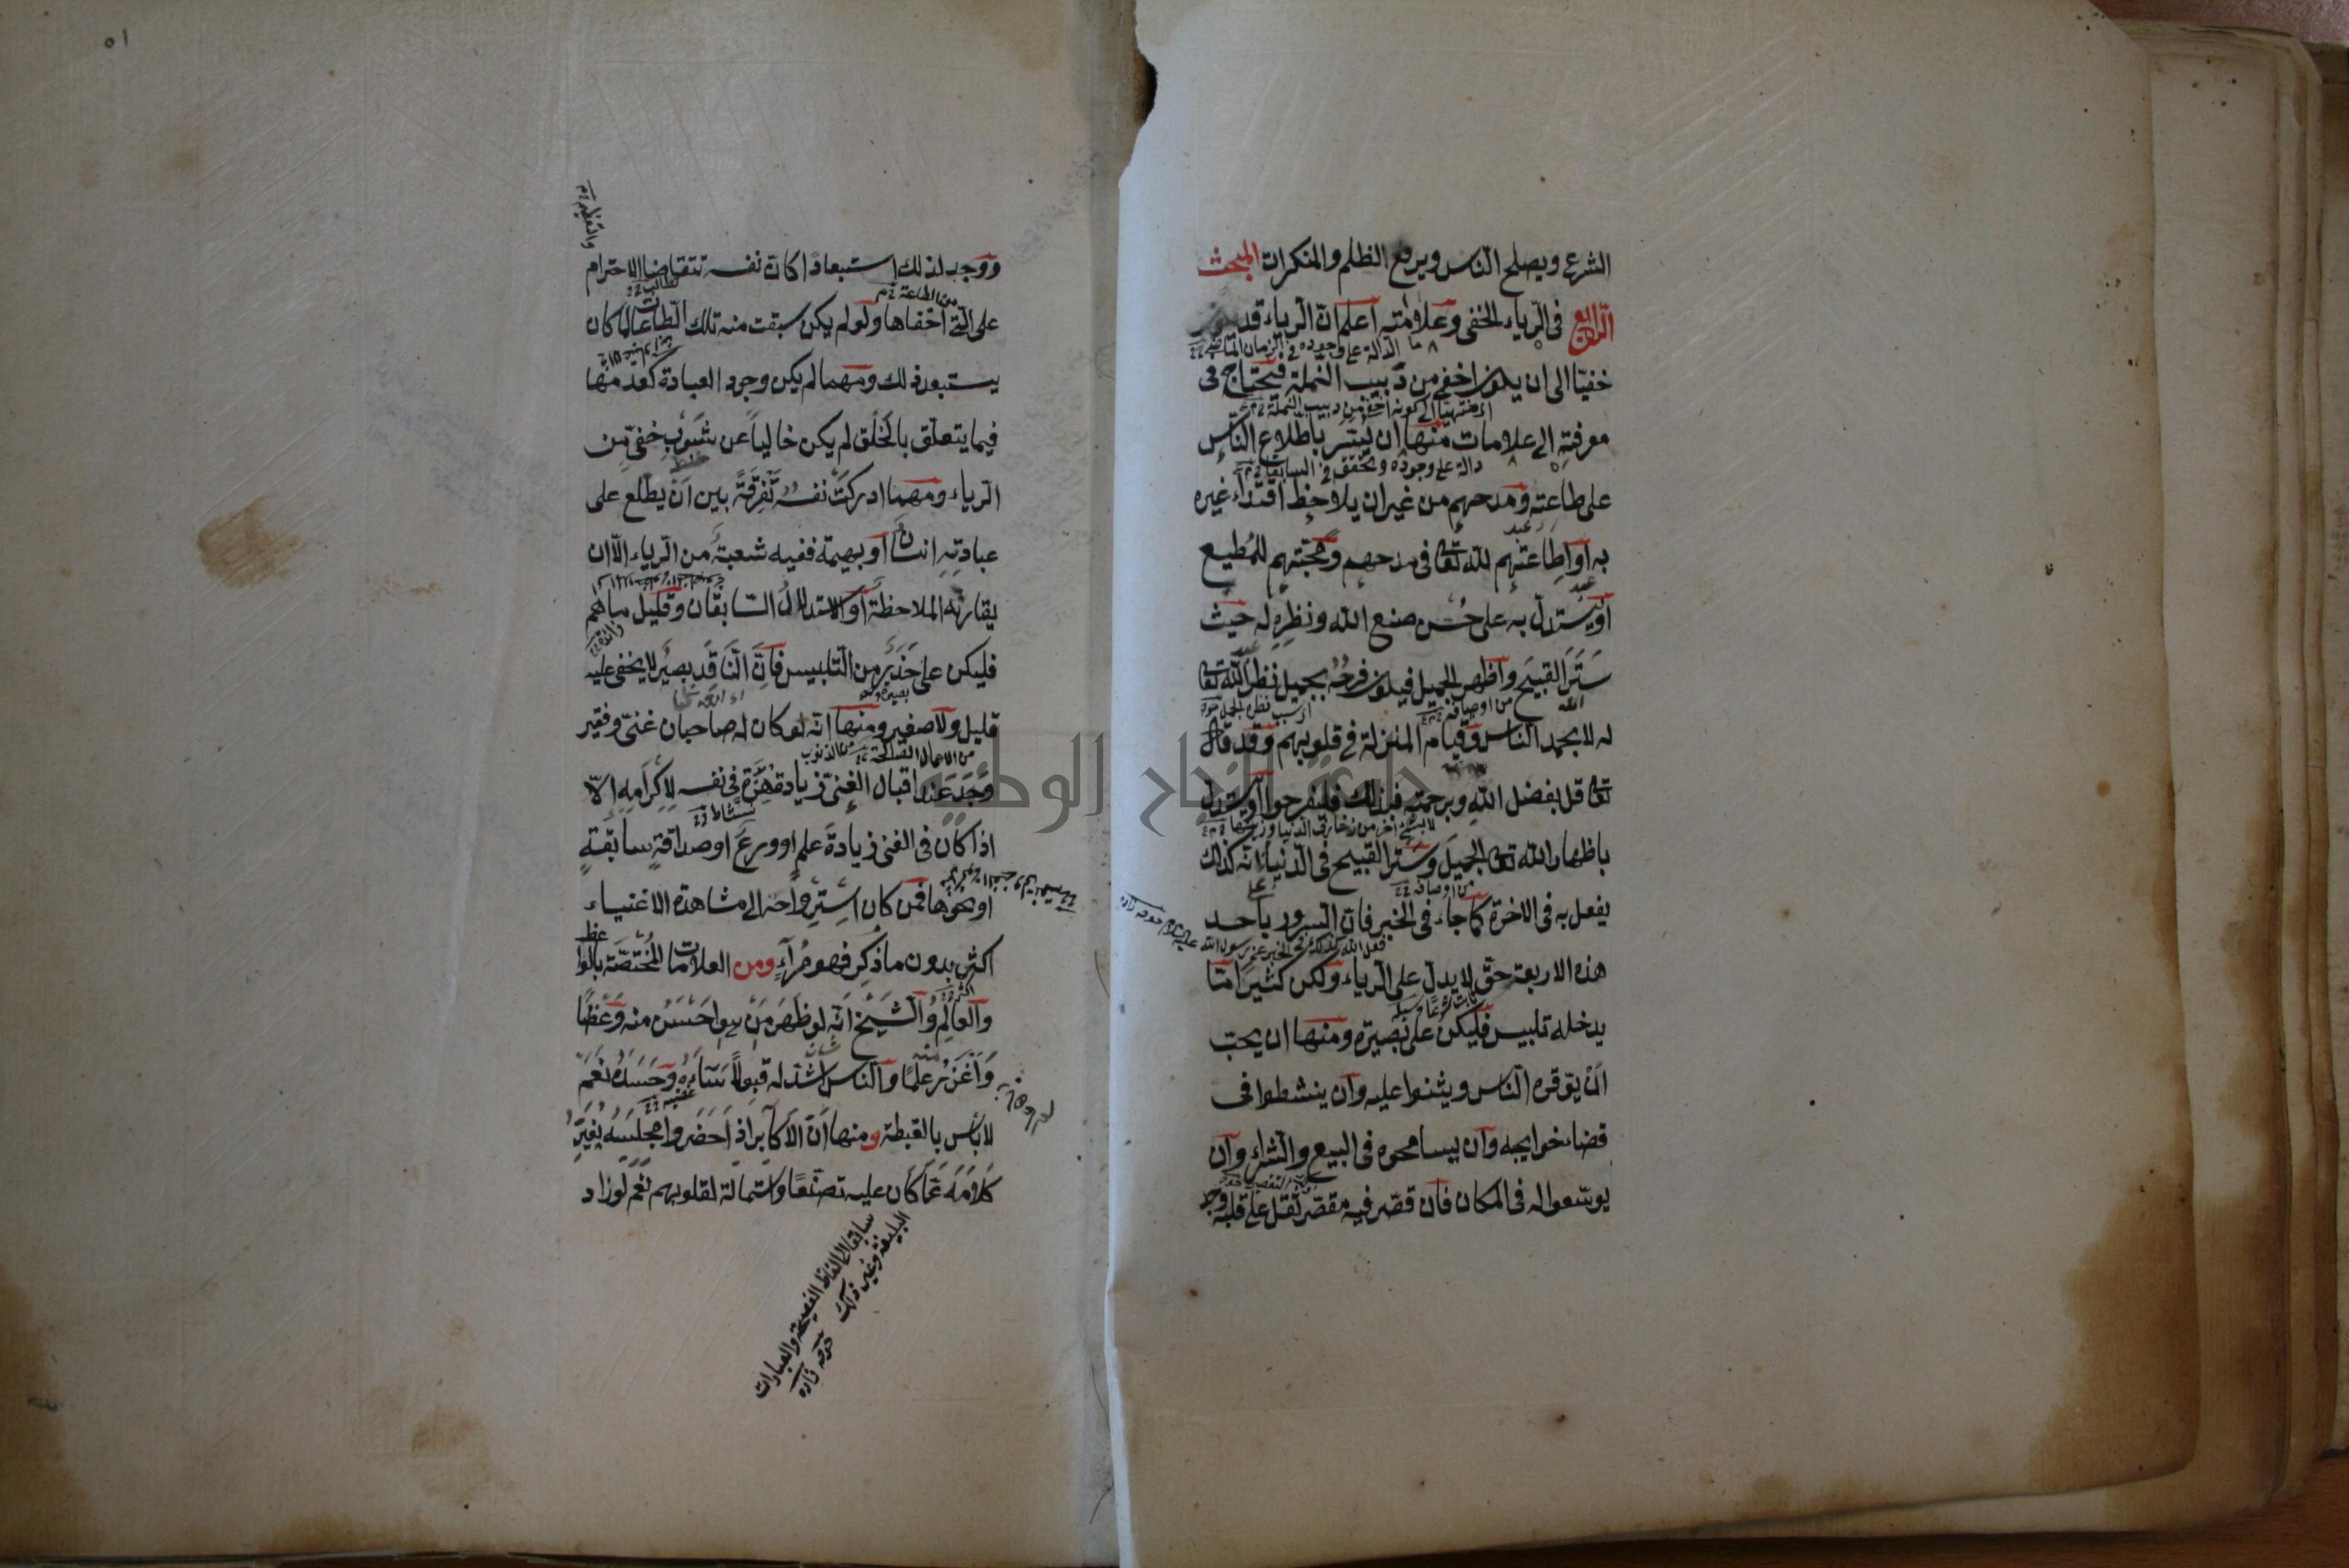 الشرع ويصلح الناس ويرفع الظلم والمنكرات المبحث
الرابع فى الرياء الخفى وعلامته اعلم ان الرياء قد يكون
الدالة على وجوده فى الزمان
خفيا الى ان يكون اخفى من دبيب النملة فيحتاج فى
اى منتهيا الى كونه اخفى من دبيب النملة
معرفته الى علامات منها ان يسر باطلاع الناس
دالة على وجوده وتحققه فى
على طاعته ومدحهم من غير ان يلاحظ اقتداء غيره
به او اطاعتهم لله تعالى فى مدحهم ومحبتهم للمطيع
او يستدل به على حسن صنع الله ونظره له حيث
ستر القبيح واظهر الجميل فيكون فرحه بجميل نظر الله تعالى
الله من اوصافه
له لا بحمد الناس وقيام المنزلة فى قلوبهم وقد قال
تعالى قل بفضل الله وبرحمته فبذلك فليفرحوا او يستدل
لا بشئ اخر من زخارف الدنيا وزينتها
باظهار الله تعالى الجميل وستر القبيح فى الدنيا انه كذلك
من اوصافه
يفعل به فى الاخرة كما جاء فى الخبر فان السرور باحد
هذه الاربعة حق لا يدل على الرياء ولكن كثيرا ما
يدخله تلبيس فليكن على بصيرة ومنها ان يحب
ان يوقره الناس ويثنوا عليه وان ينشطوا فى
قضاء حوايجه وان يسامحوه فى البيع والشراء وان
يوسعوا له فى المكان فان قصر فيه مقصر ثقل على قلبه وجد
٥١
والتعظيم
ووجد لذلك استبعادا كان نفسه تتقاضا الاحترام
من الطاعة
على التى اخفاها ولو لم يكن سبقت منه تلك الطاعات لما كان
يستبعد ذلك ومهما لم يكن وجود العبادة كعدمها
فيما يتعلق بالخلق لم يكن خاليا عن شوب خفى من
الرياء ومهما ادركت نفسه تفرقة بين ان يطلع على
عبادته انسان او بهيمة ففيه شعبة من الرياء الا ان
يقارنه الملاحظة او الاستدلال السابقان وقليل ما هم
فليكن على حذر من التلبيس فان الناقد بصير لا يخفى عليه
قليل ولا صغير ومنها انه لو كان له صاحبان غنى وفقير
من الاعمال الصالحة من الذنوب
وجد عند اقبال الغنى زيادة هزة فى نفسه لاكرامه الا
اذا كان فى الغنى زيادة علم او ورع او صداقة سابقة
او نحوها فمن كان استرواحه الى مشاهدة الاغنياء
اكثر بدون ما ذكر فهو مراء ومن العلامات المختصة بالواعظ
والعالم والشيخ انه لو ظهر من هو احسن منه وعظا
واغزر علما والناس اشد له قبولا ساءه وحسده نعم
لا باس بالغبطة ومنها ان الاكابر اذا حضروا مجلسه يغير
كلامه عما كان عليه تصنعا واستمالة لقلوبهم نعم لو زاد
سابقا الالفاظ الفصيحة والعبارات
البليغة وغير ذلك
خوجه زاده